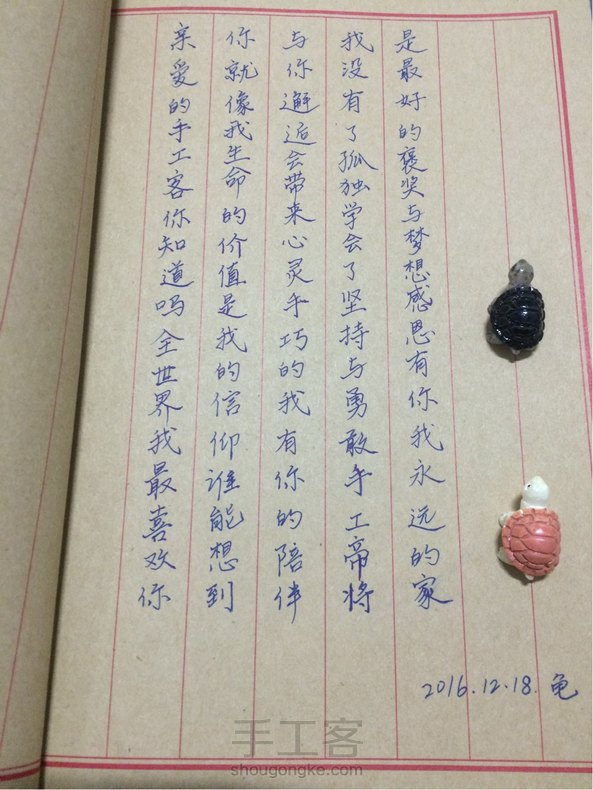 亲爱的手工客你知道吗全世界我最喜欢你
你就像我生命的价值是我的信仰谁能想到
与你邂逅会带来心灵手巧的我有你的陪伴
我没有了孤独学会了坚持与勇敢手工帝将
是最好的褒奖与梦想感恩有你我永远的家
2016.12.18.龟
手工客
shougongke.com